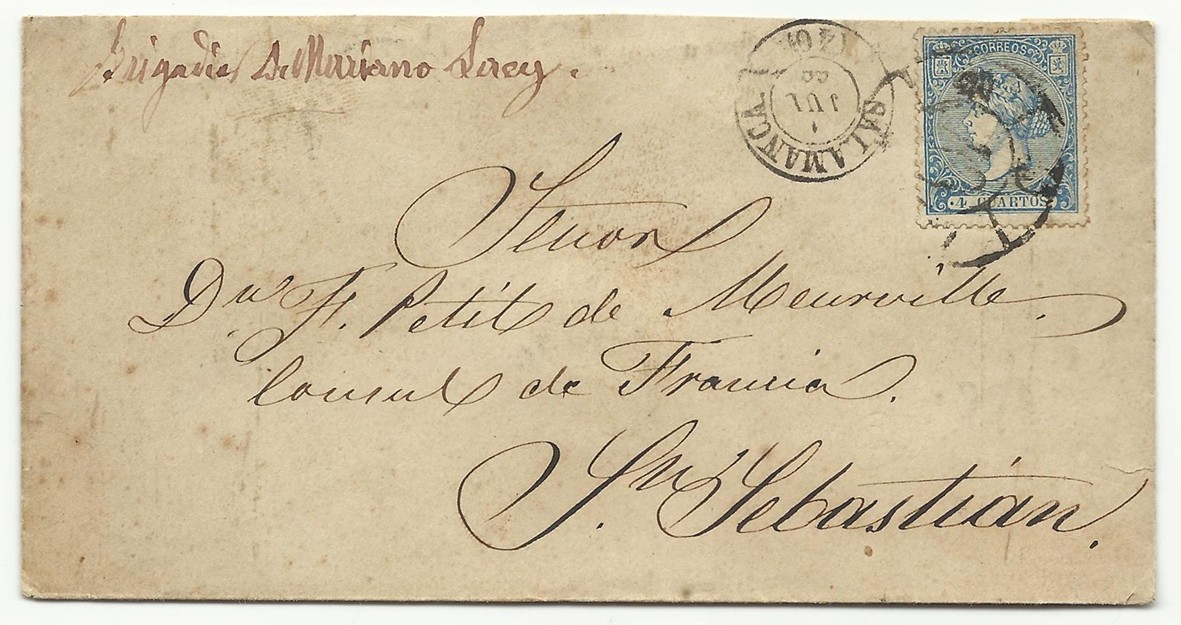 Brigadier Dn Mariano Lacy.
SALAMANCA
1
JUL
66
CORREOS
4 CUARTOS
Señor
Dn. F. Petit de Meurville.
Consul de Francia.
S. Sebastián.